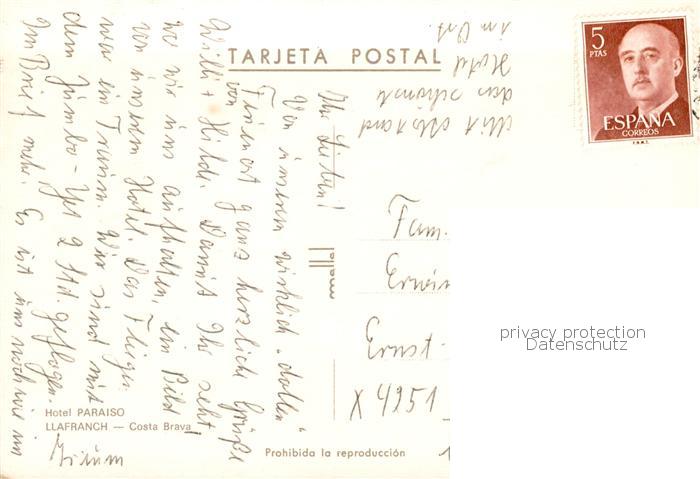 TARJETA POSTAL
Ihr Lieben!
Von unserem wirklich "dollen"
Ferienort ganz herzliche Grüße
von
Willi + Hilde. Damit Ihr seht
wo wir uns aufhalten, ein Bild
von unserem Hotel. Das Fliegen
war ein Traum. Wir sind mit
dem Jumbo-Jet 2 Std. geflogen.
Im Brief mehr. Es ist uns noch wie im
Traum
das schönste
Hotel
am Ort.
5
PTAS
ESPAÑA
CORREOS
F.N.M.T.
Fam.
Erwin
Ernst-
X 4951
privacy protection
Datenschutz
Hotel PARAISO
LLAFRANCH — Costa Brava
Prohibida la reproducción